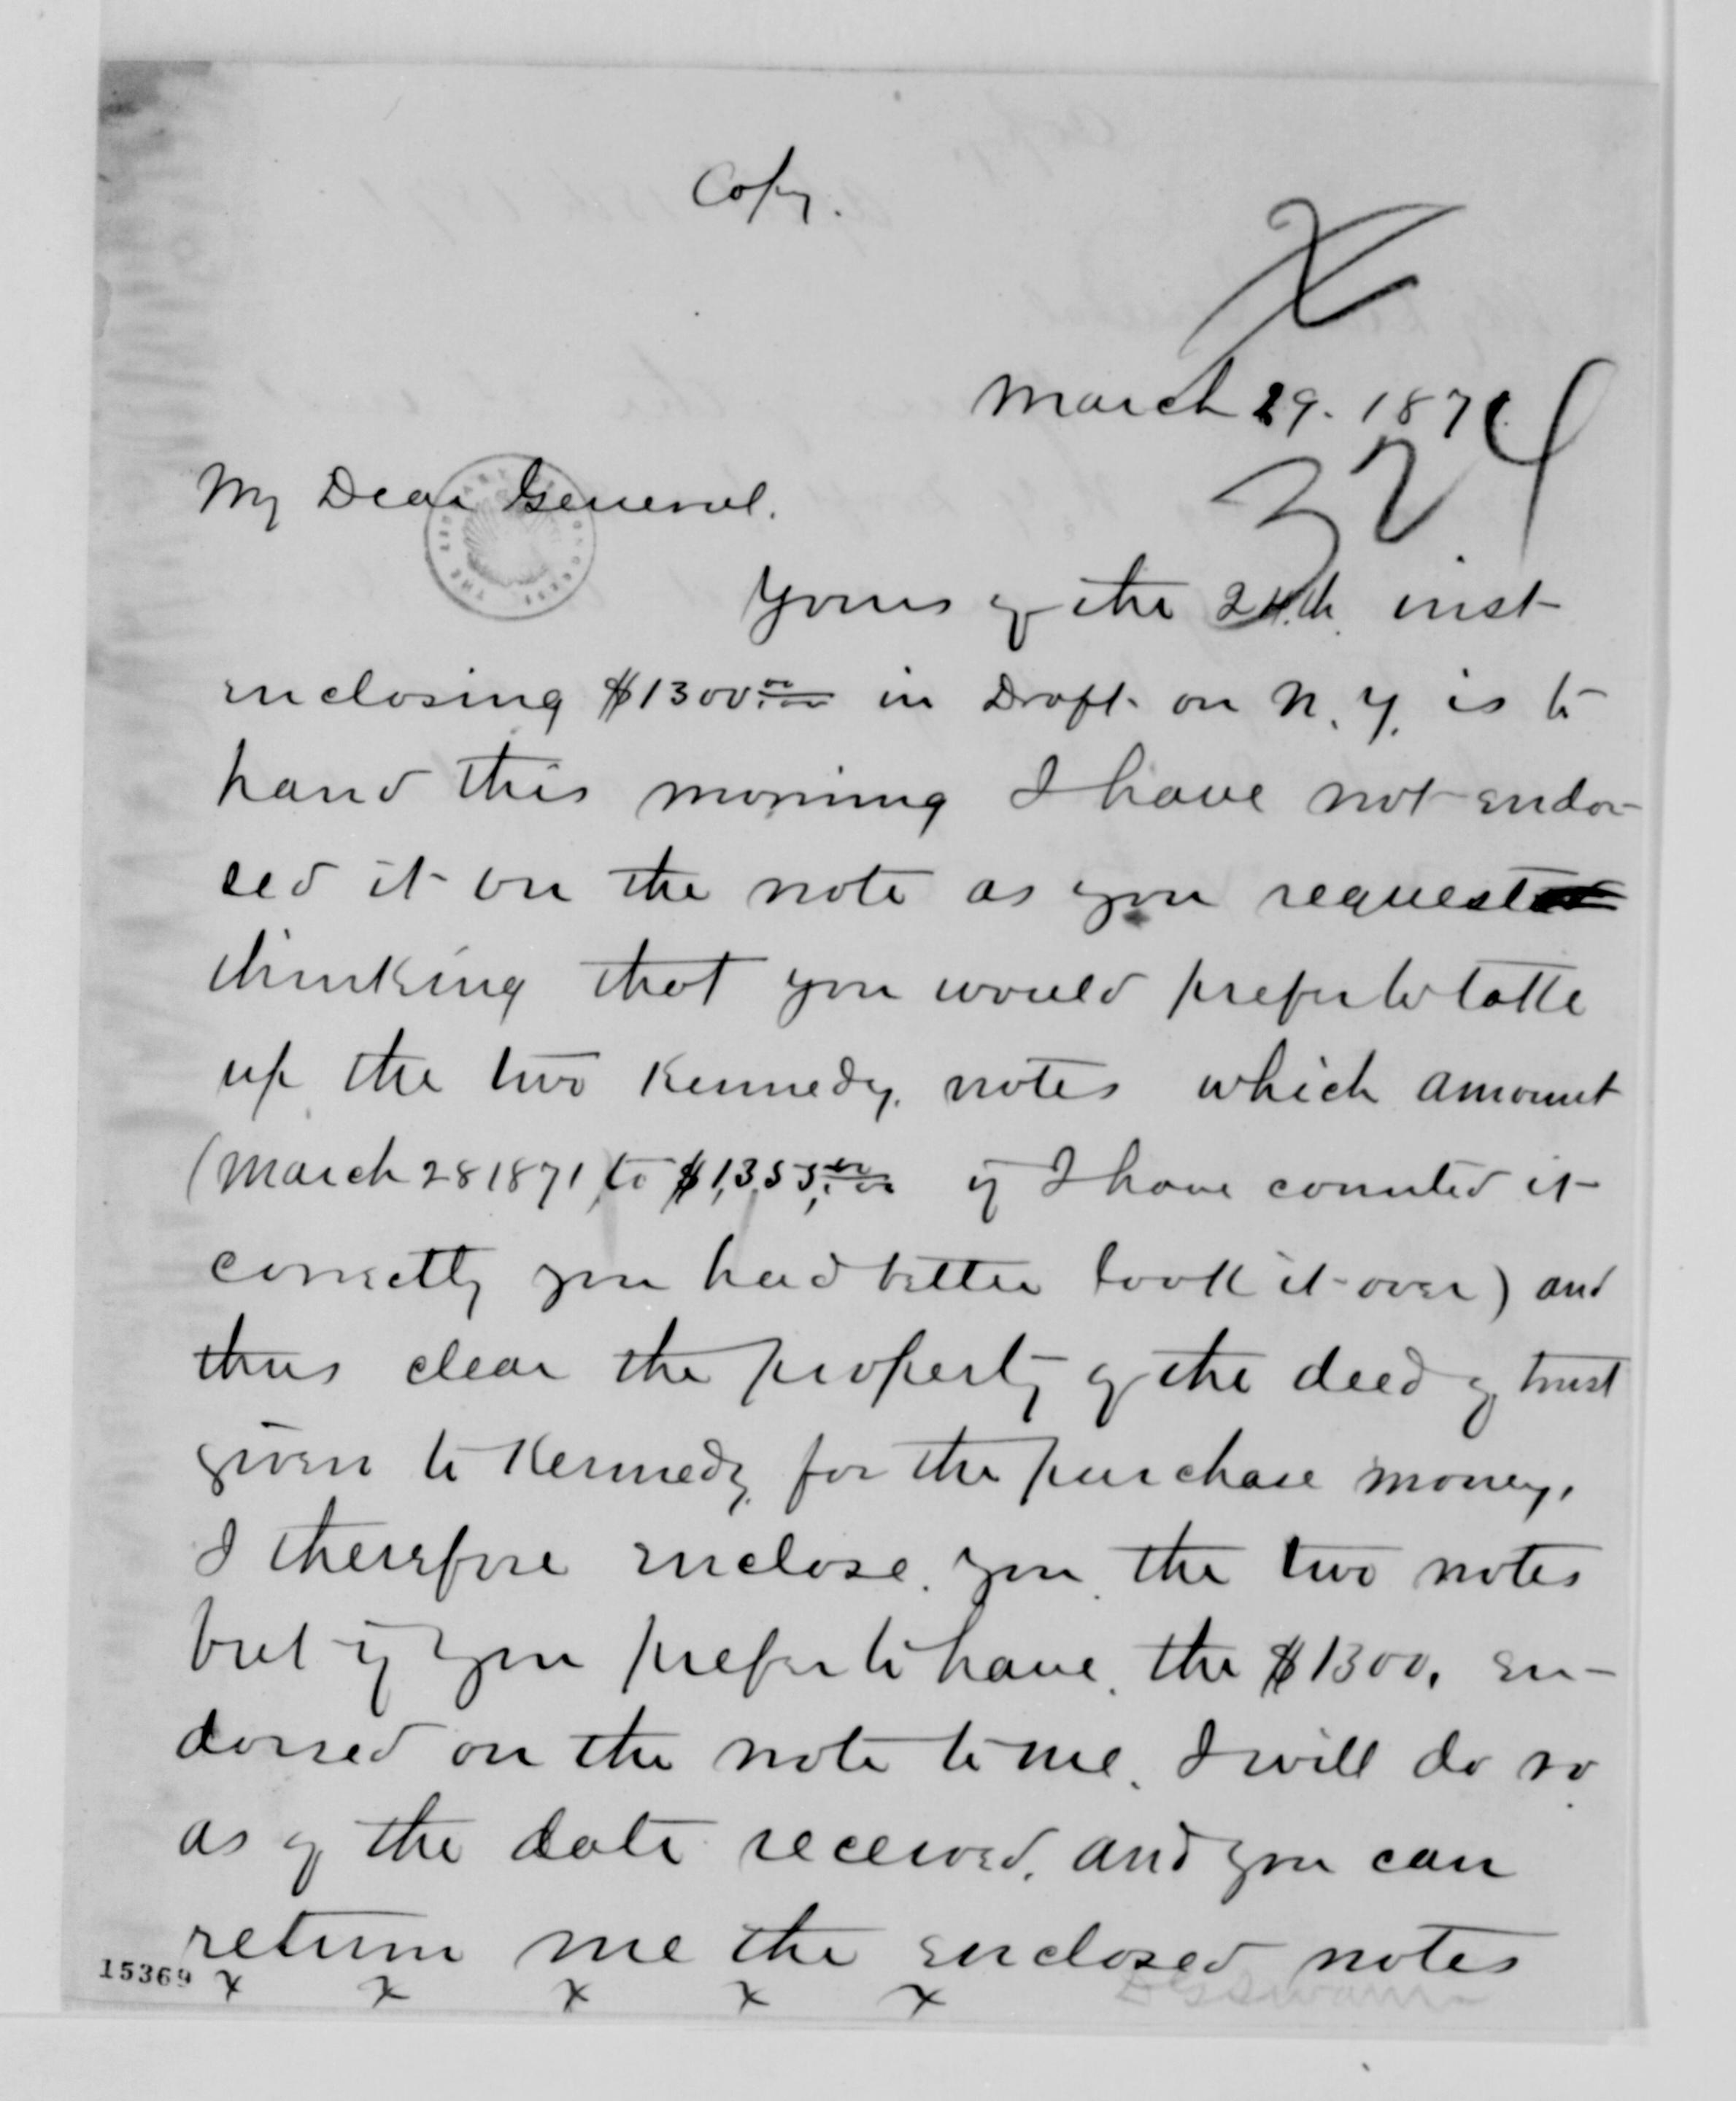 Copy.
X
March 29. 1871
324
My Dear General.
Yours of the 24th. inst
enclosing $1300.00 in Draft on N. Y. is to
hand this morning I have not endor-
sed it on the note as you request
thinking that you would prefer to take
up the two Kennedy notes which amount
(March 28 1871 to $1,355,00 if I have counted it
correctly you had better look it over) and
thus clear the property of the deed of trust
given to Kennedy for the purchase money,
I therefore enclose you the two notes
but if you prefer to have the $1300, en-
dorsed on the note to me. I will do so
as of the date received. and you can
return me the enclosed notes
15369 x x x x x
D G Swaim